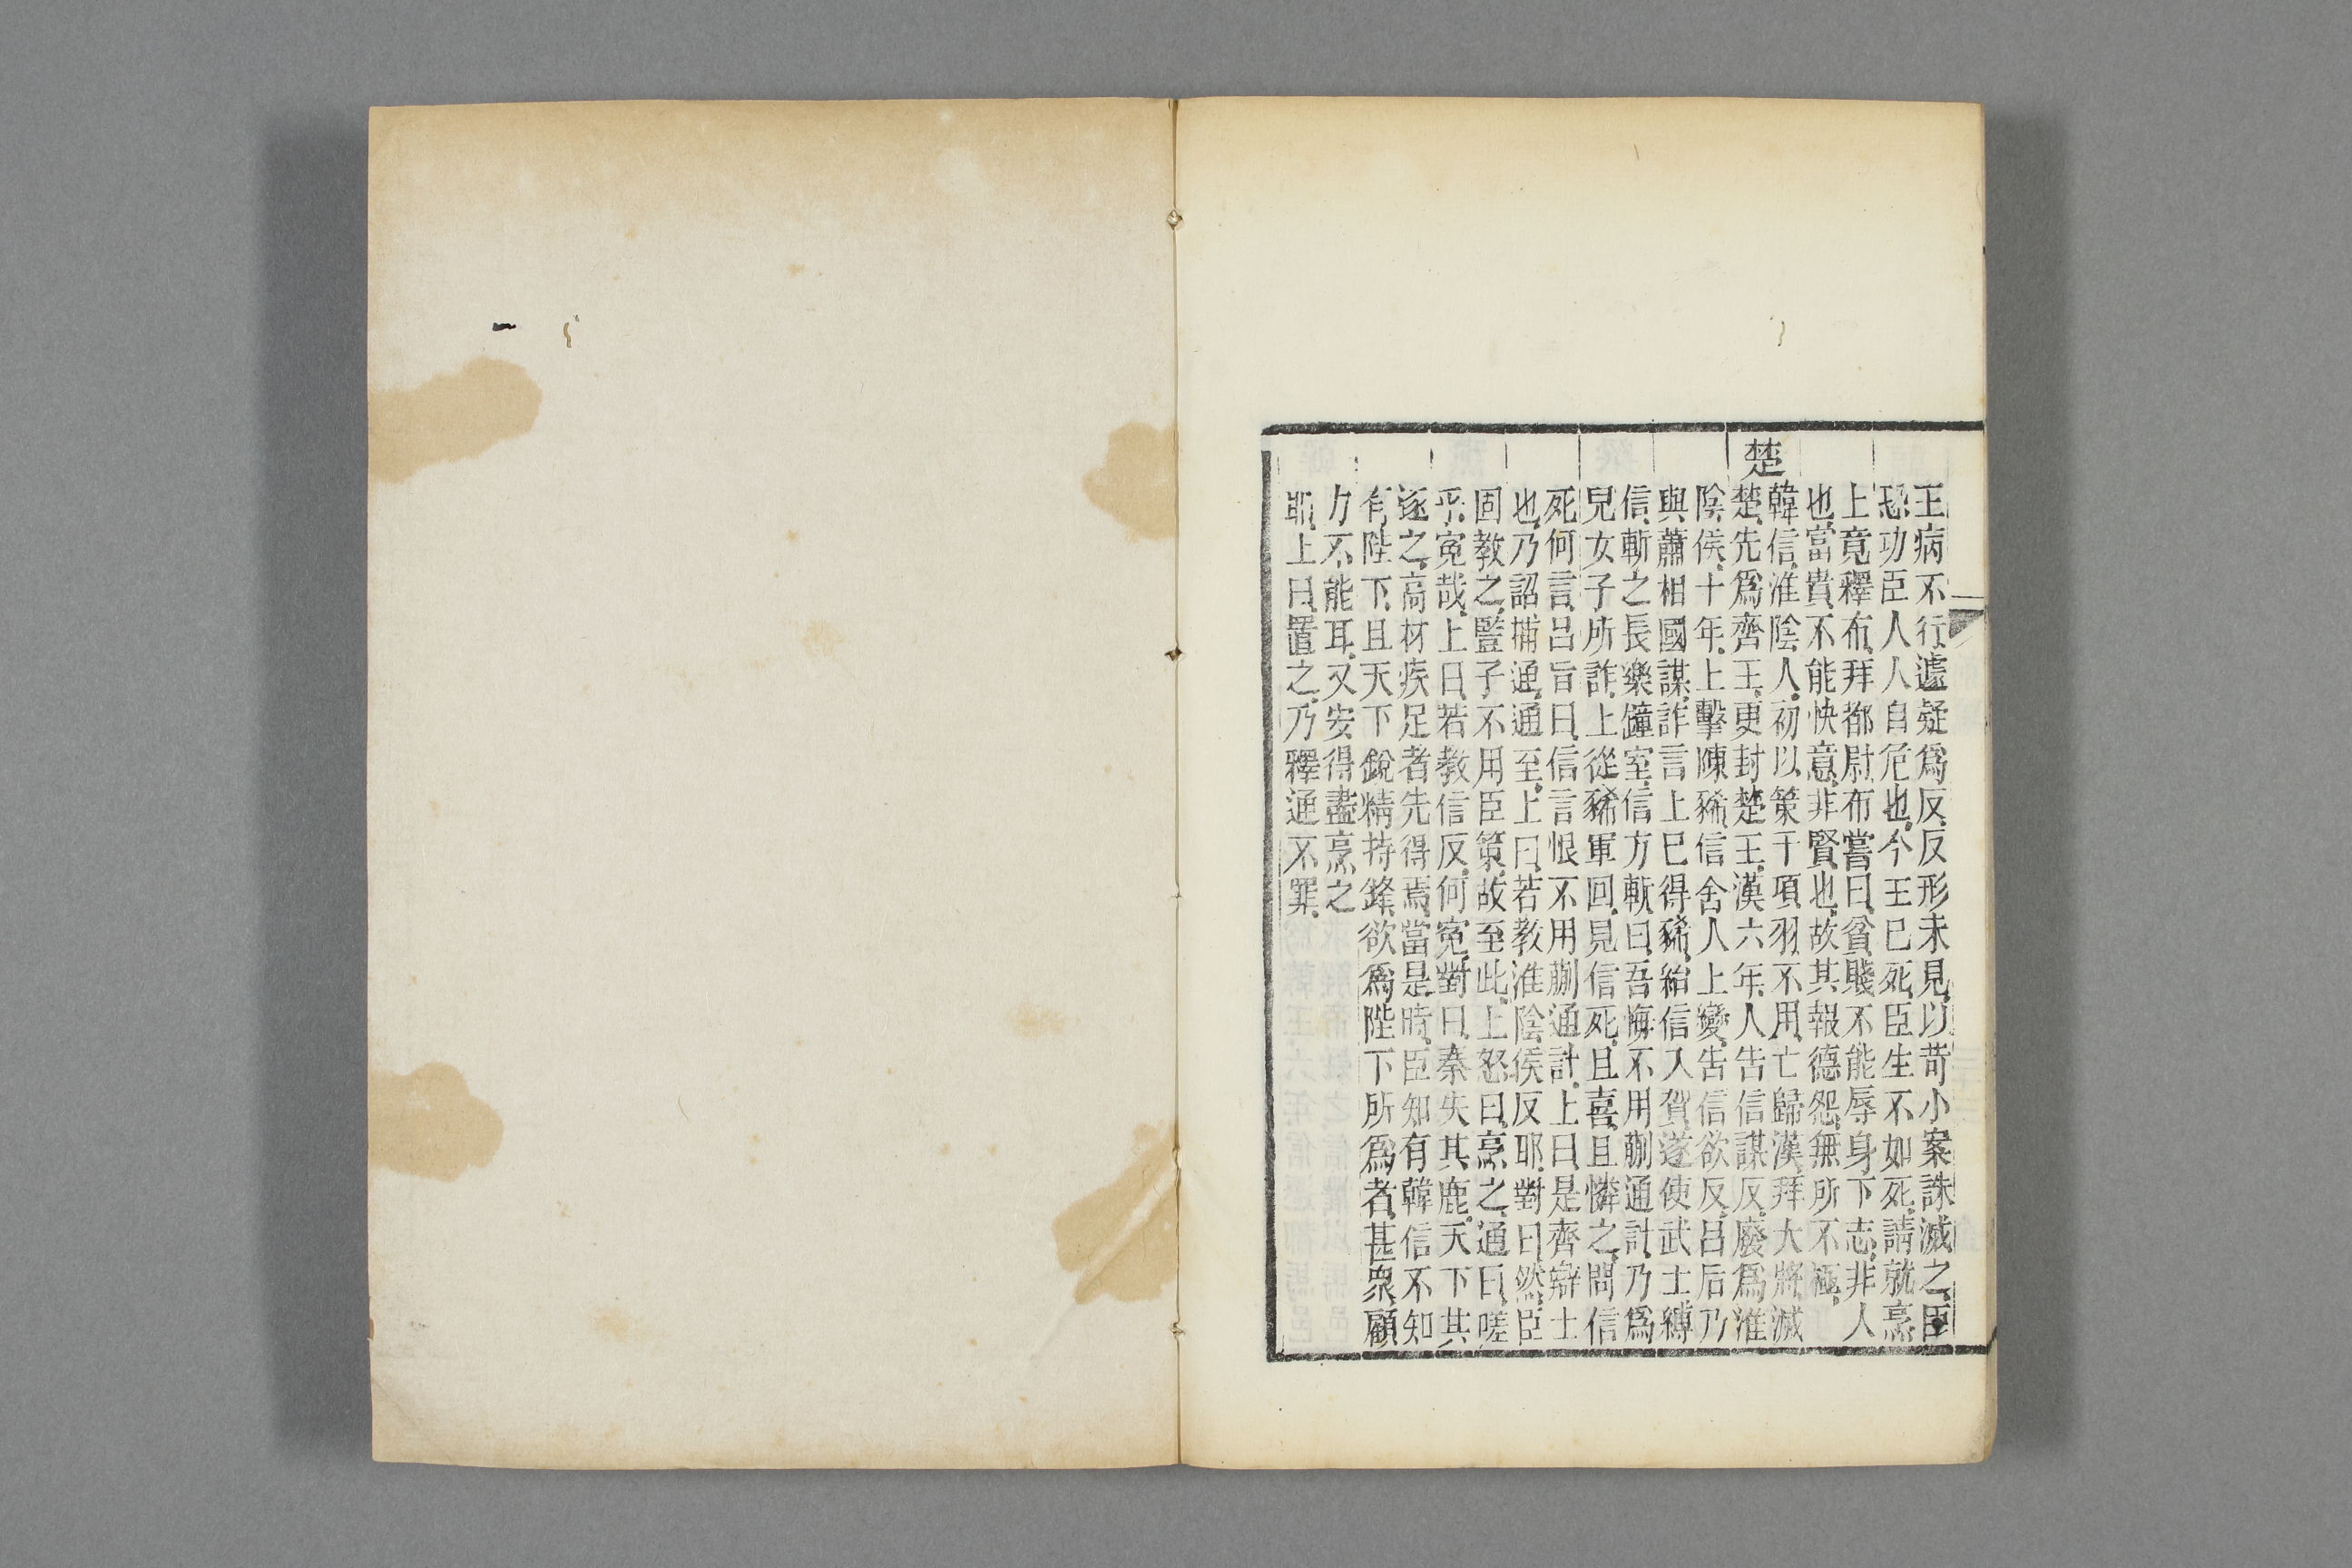 王病不行遽疑爲反反形未見以苛小案誅滅之臣
恐功臣人人自危也今王已死臣生不如死請就烹
上竟釋布拜都尉布嘗曰貧賤不能辱身下志非人
也富貴不能快意非賢也故其報德怨無所不極
楚
韓信淮陰人初以策干項羽不用亡歸漢拜大將滅
楚先爲齊王更封楚王漢六年人告信謀反廢爲淮
陰侯十年上擊陳豨信舍人上變告信欲反呂后乃
與蕭相國謀詐言上已得豨紿信入賀遂使武士縛
信斬之長樂鐘室信方斬曰吾悔不用蒯通計乃爲
兒女子所詐上從豨軍回見信死且喜且憐之問信
死何言呂旨曰信言恨不用蒯通計上曰是齊辯士
也乃詔捕通通至上曰若教淮陰侯反耶對曰然臣
固教之豎子不用臣策故至此上怒曰烹之通曰嗟
乎寃哉上曰若教信反何寃對曰秦失其鹿天下其
逐之高材疾足者先得焉當是時臣知有韓信不知
有陛下且天下銳精持鋒欲爲陛下所爲者甚衆顧
力不能耳又安得盡烹之
耶上曰置之乃釋通不罪